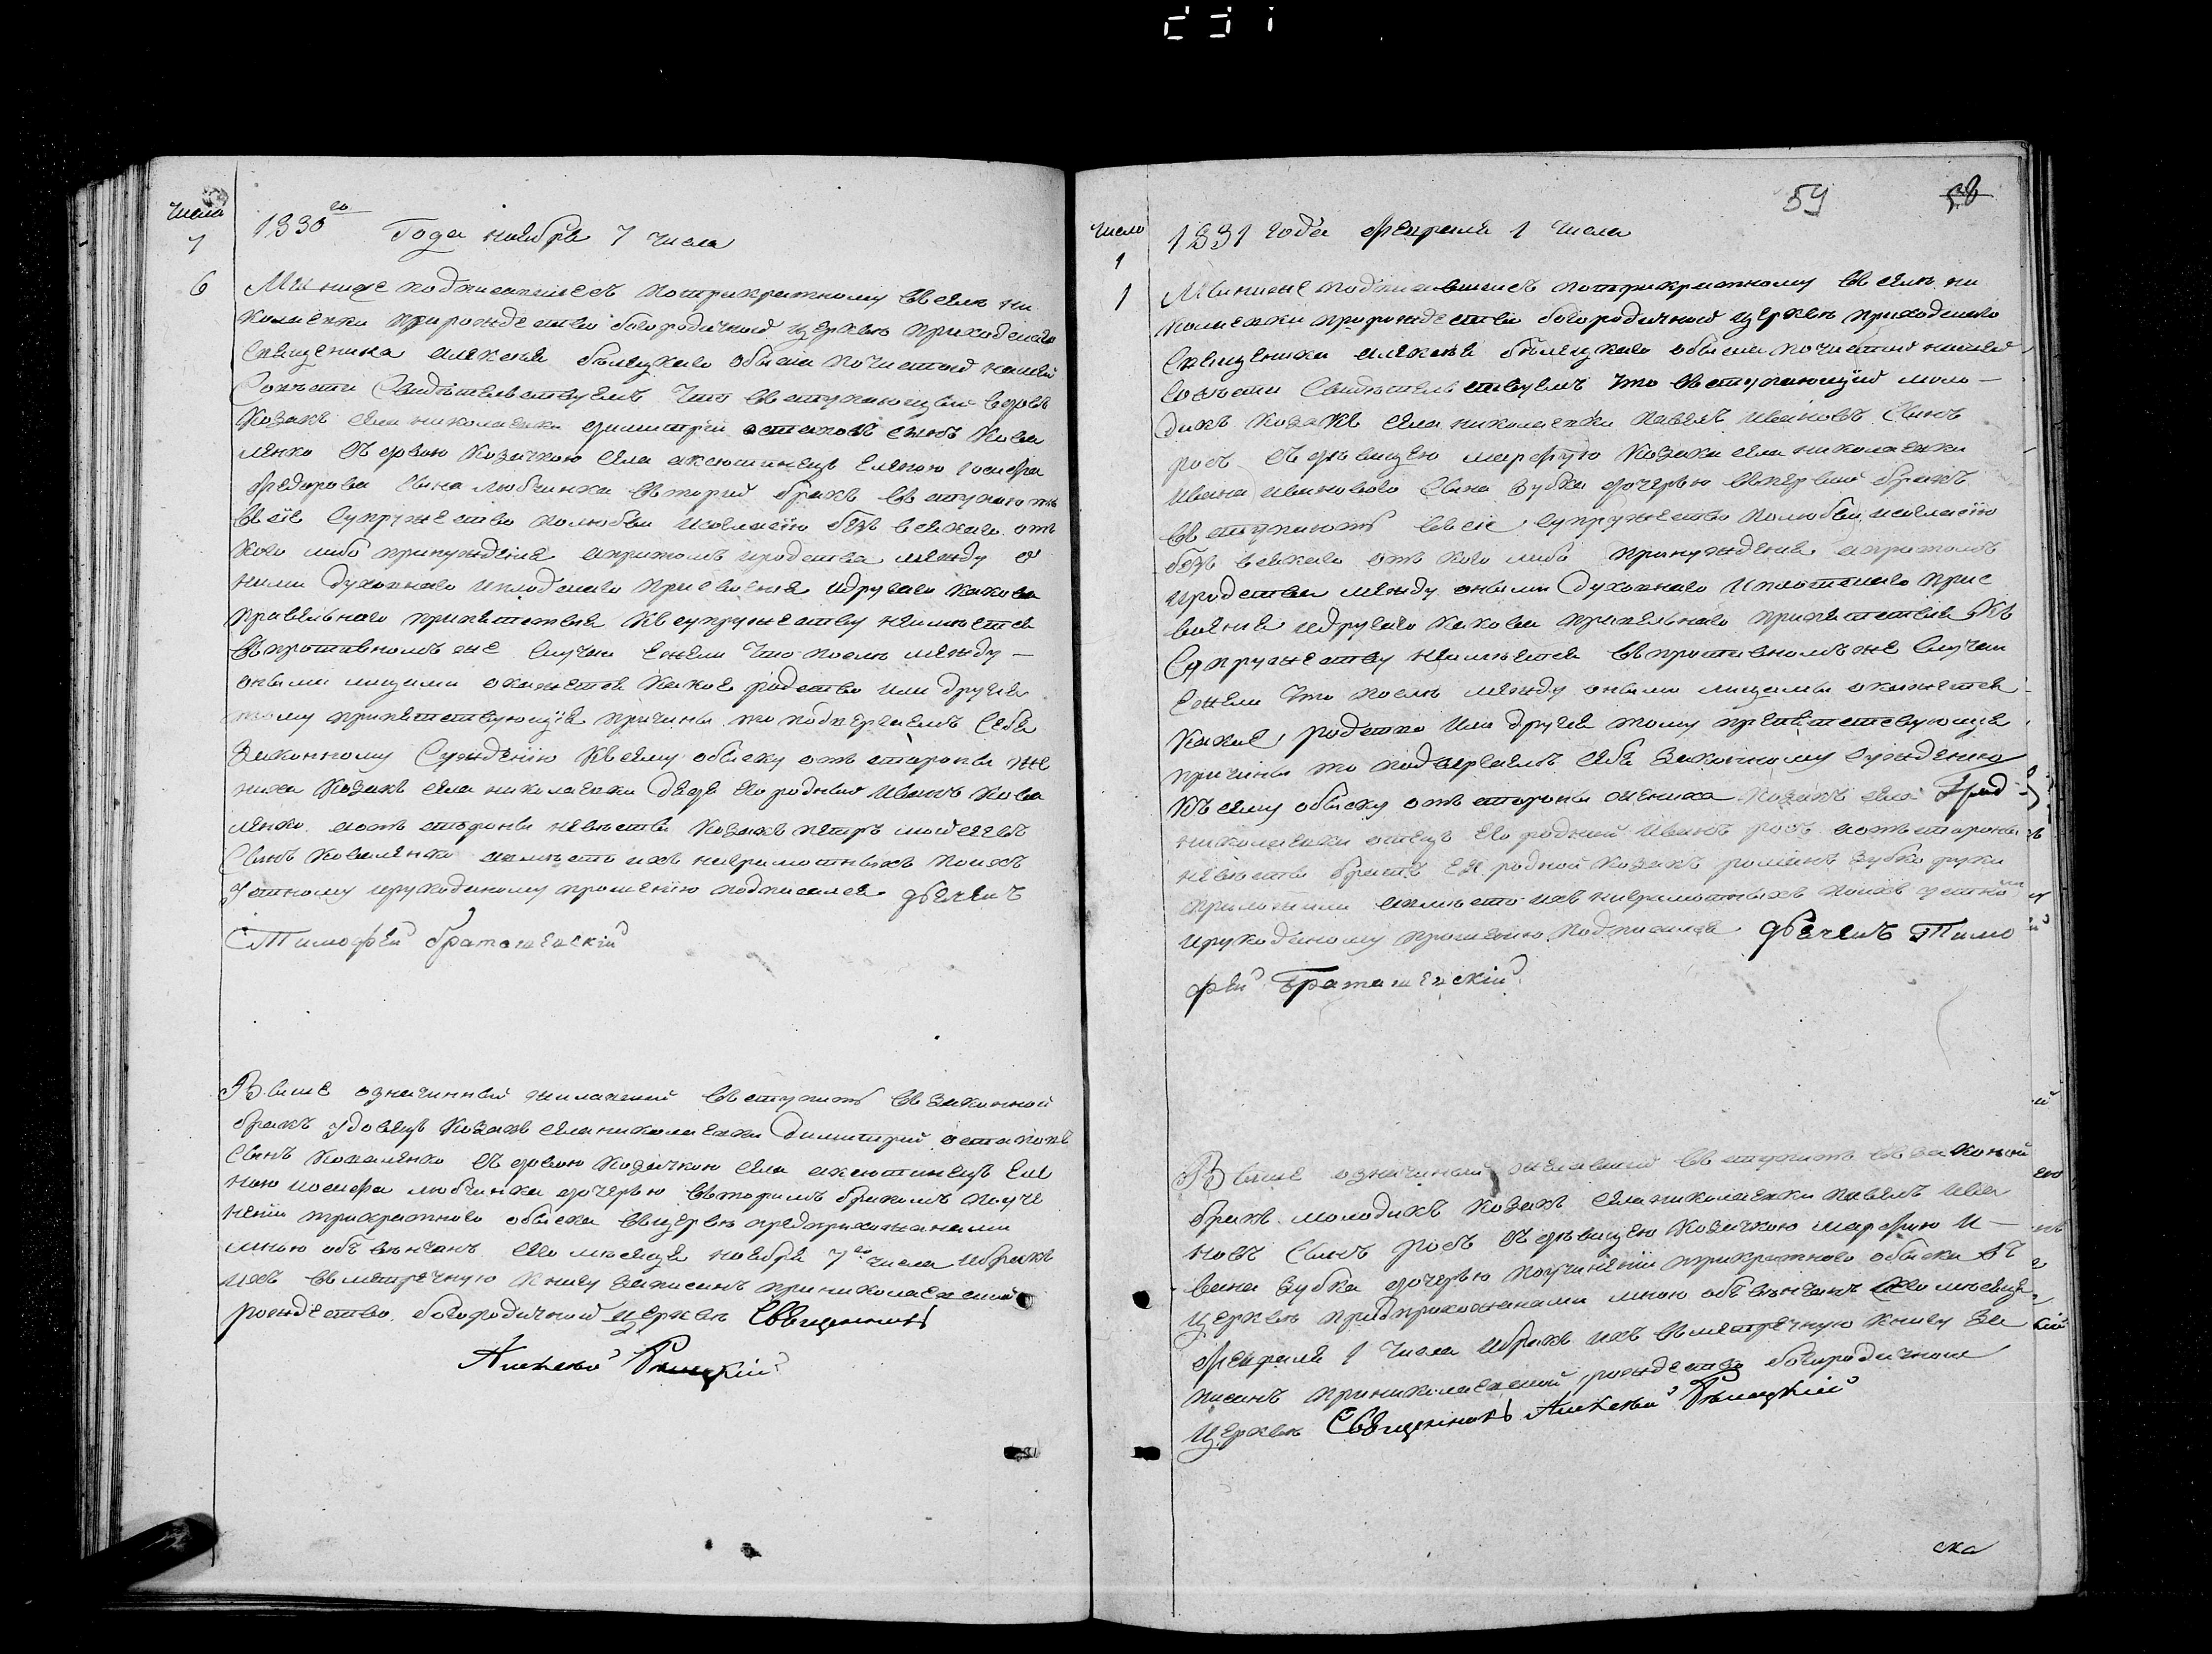 число
7
6
1830го Года ноября 7 числа
Ми ниже подписавшиесъ потрикратному въ селе ни
колаевки при рождество богородичной церкве приходскаго
священика алексея обыска почистой нашей
Совести Свидетельствуемъ что въступающый вдовъ
козакъ села николаевки димитрїй остаповъ сынъ Кова
ленко съ козачкою села аксютинецъ Еленою Іосифа
Федорова сына любчинка въторий бракъ въступаютъ
въ сїе супружество полюбви исогласїю безъ всякаго отъ
кого либо принуждения апритомъ иродства между о
ними духовнаго иплодскаго присвоения идругаго какова
правельнаго припятствия къ супружеству неимеется
въпротивномъ же случаи ежели что после между —
оными лицами окажется какое родство или другия
тому припятствующїя причины то подвергаемъ себя
Законному Суждению къ сему обыску отъ стороны же
ниха козакъ села николаевки дядя его родный Иванъ Кова
ленко аотъ стороны невесты козакъ петръ
сынъ Коваленко авместо ихъ неграмотныхъ поихъ
устному ирукоданому прошению подписался дьячекъ
Тимофей братановскїй
Више означинный жилающий въступить въ законной
бракъ удовецъ козакъ села николаевки димитрий остаповъ
сынъ коваленко съ козачкою села аксютинецъ Еле
ною иосифа любчинка дочерью въторимъ бракомъ поучи
ненїи трикратного обыска въцеркве предприхожанами
мною объвенчанъ сего месяца ноября 7го числа ибракъ
ихъ въметречную книгу записанъ приниколаевской
рождество богородичной церкве Священникъ
Алексей Белецкїй
59
58
число
1
1
1831 года февраля 1 числа
Мы ниже подписавшиесъ потрикратному въ селе ни
колаевки при рождество богородичной церкве приходскаго
священика алексея белецкаго обыска почистой нашей
совести Свидетельствуемъ что въступающїй моло —
дикъ козакъ села николаевки павелъ ивановъ сынъ
росъ съ девицею марфую козака села николаевки
ивана ивановаго сына зубка дочерью въпервый бракъ
въступаютъ въ сїе супружество полюбви исогласїю
безъ всякаго отъ кого либо принуждения апритомъ
иродства между оными духовнаго иплотскаго прис
воения идругаго какова правельнаго припятствия къ
супружеству неимеется въпротивномъ же случаи
ежели что после между оными лицамы окажется
какое родство или другия тому препятствующия
причины то подвергаемъ себя законному суждению
къ сему обыску отъ стороны жениха козакъ села
николаевки отецъ его родний иванъ росъ аотъ стороны
невесты братъ ея родной козакъ романъ зубко руки
приложили авместо ихъ неграмотныхъ поихъ устно
ирукоданому прошению подписался дьячекъ Тимо
фей Братановскїй
Више означиный желающий въступить въ законый
бракъ молодикъ козакъ села николаевки павелъ ива
новъ сынъ росъ съ девицею козачкою марфую и —
вана зубка дочерью поучинении трикратного обыска въ
церкве предприхожанами мною объвенчанъ сего месяца
февраля 1 числа ибракъ ихъ въметречную книгу за
писанъ приниколаевской рождество богородичной
церкве Священникъ Алексей Белецкїй
ска